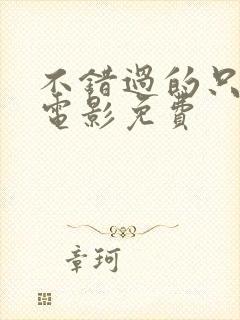 不錯過的只
電影免費
章珂